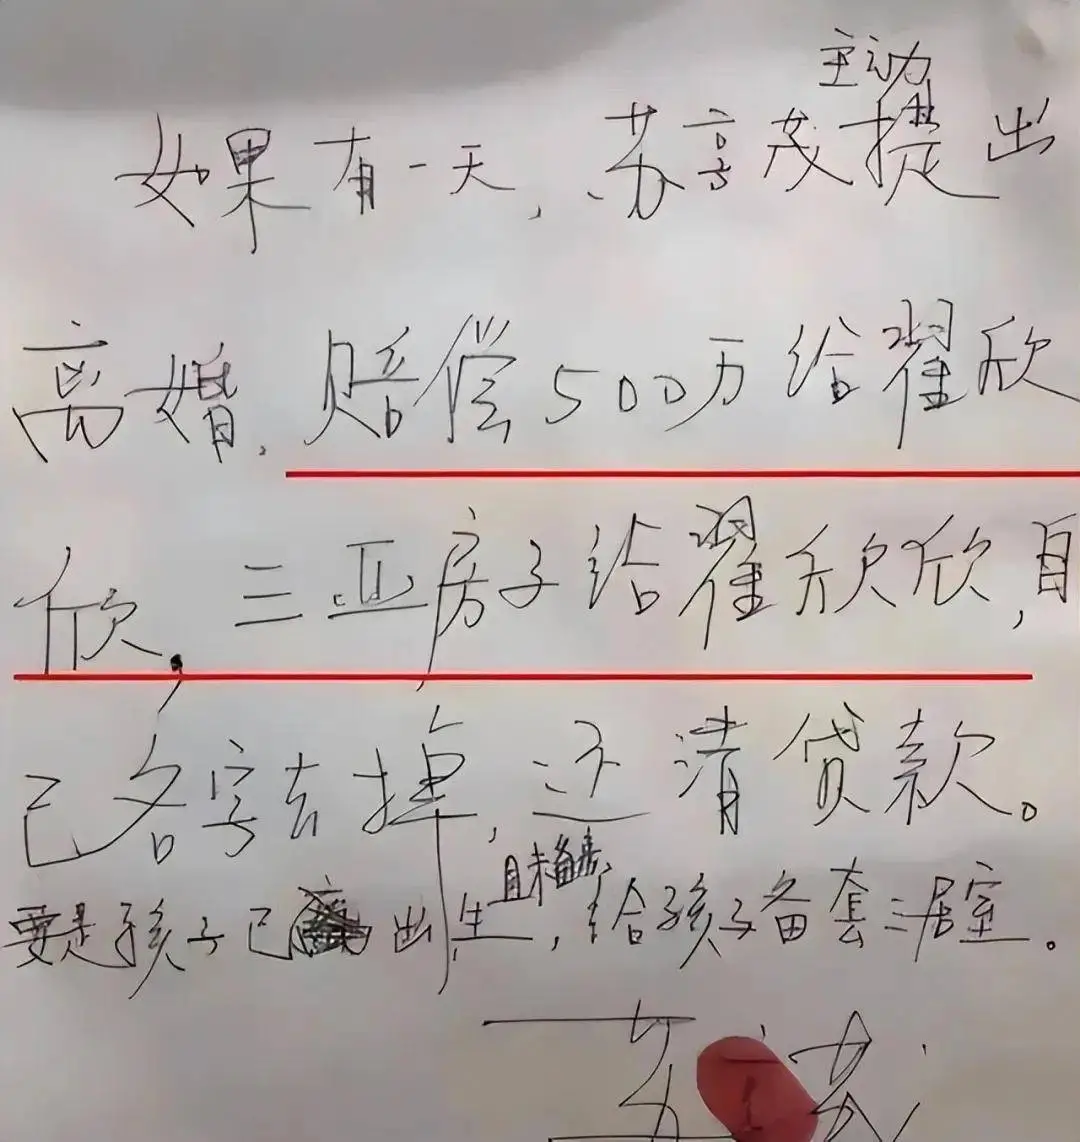 主动
如果有一天,苏享茂提出
离婚,赔偿500万给翟欣
欣,三亚房子给翟欣欣,自
己名字去掉,还清贷款。
且未
要是孩子已出生,给孩子备套三居室。
苏 茂